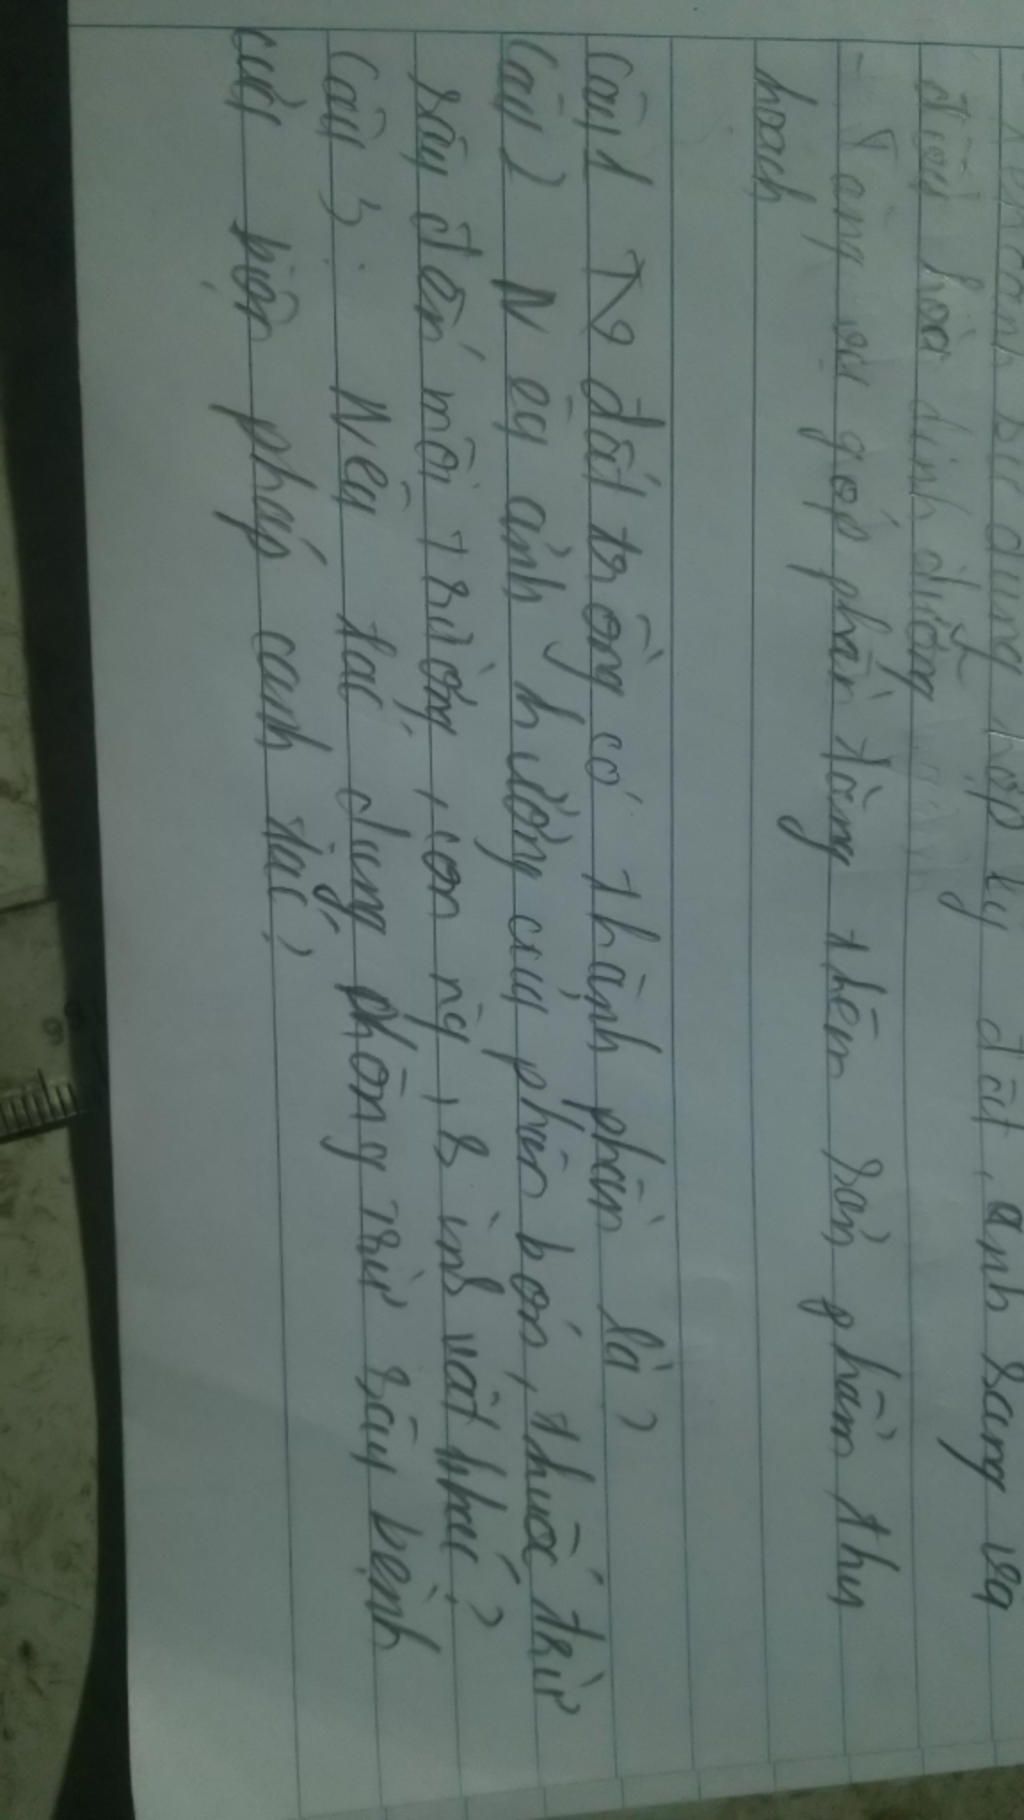 canh sử dụng hợp lý đất, ánh sáng và
điều hòa dinh dưỡng
- Tăng vụ góp phần tăng thêm sản phẩm thu
hoạch
Câu 1 đất trồng có thành phần là?
Câu 2 Nêu ảnh hưởng của phân bón, thuốc trừ
sâu đến môi trường, con ng, sinh vật khác?
Câu 3: Nêu tác dụng phòng trừ sâu bệnh
của biện pháp canh tác?